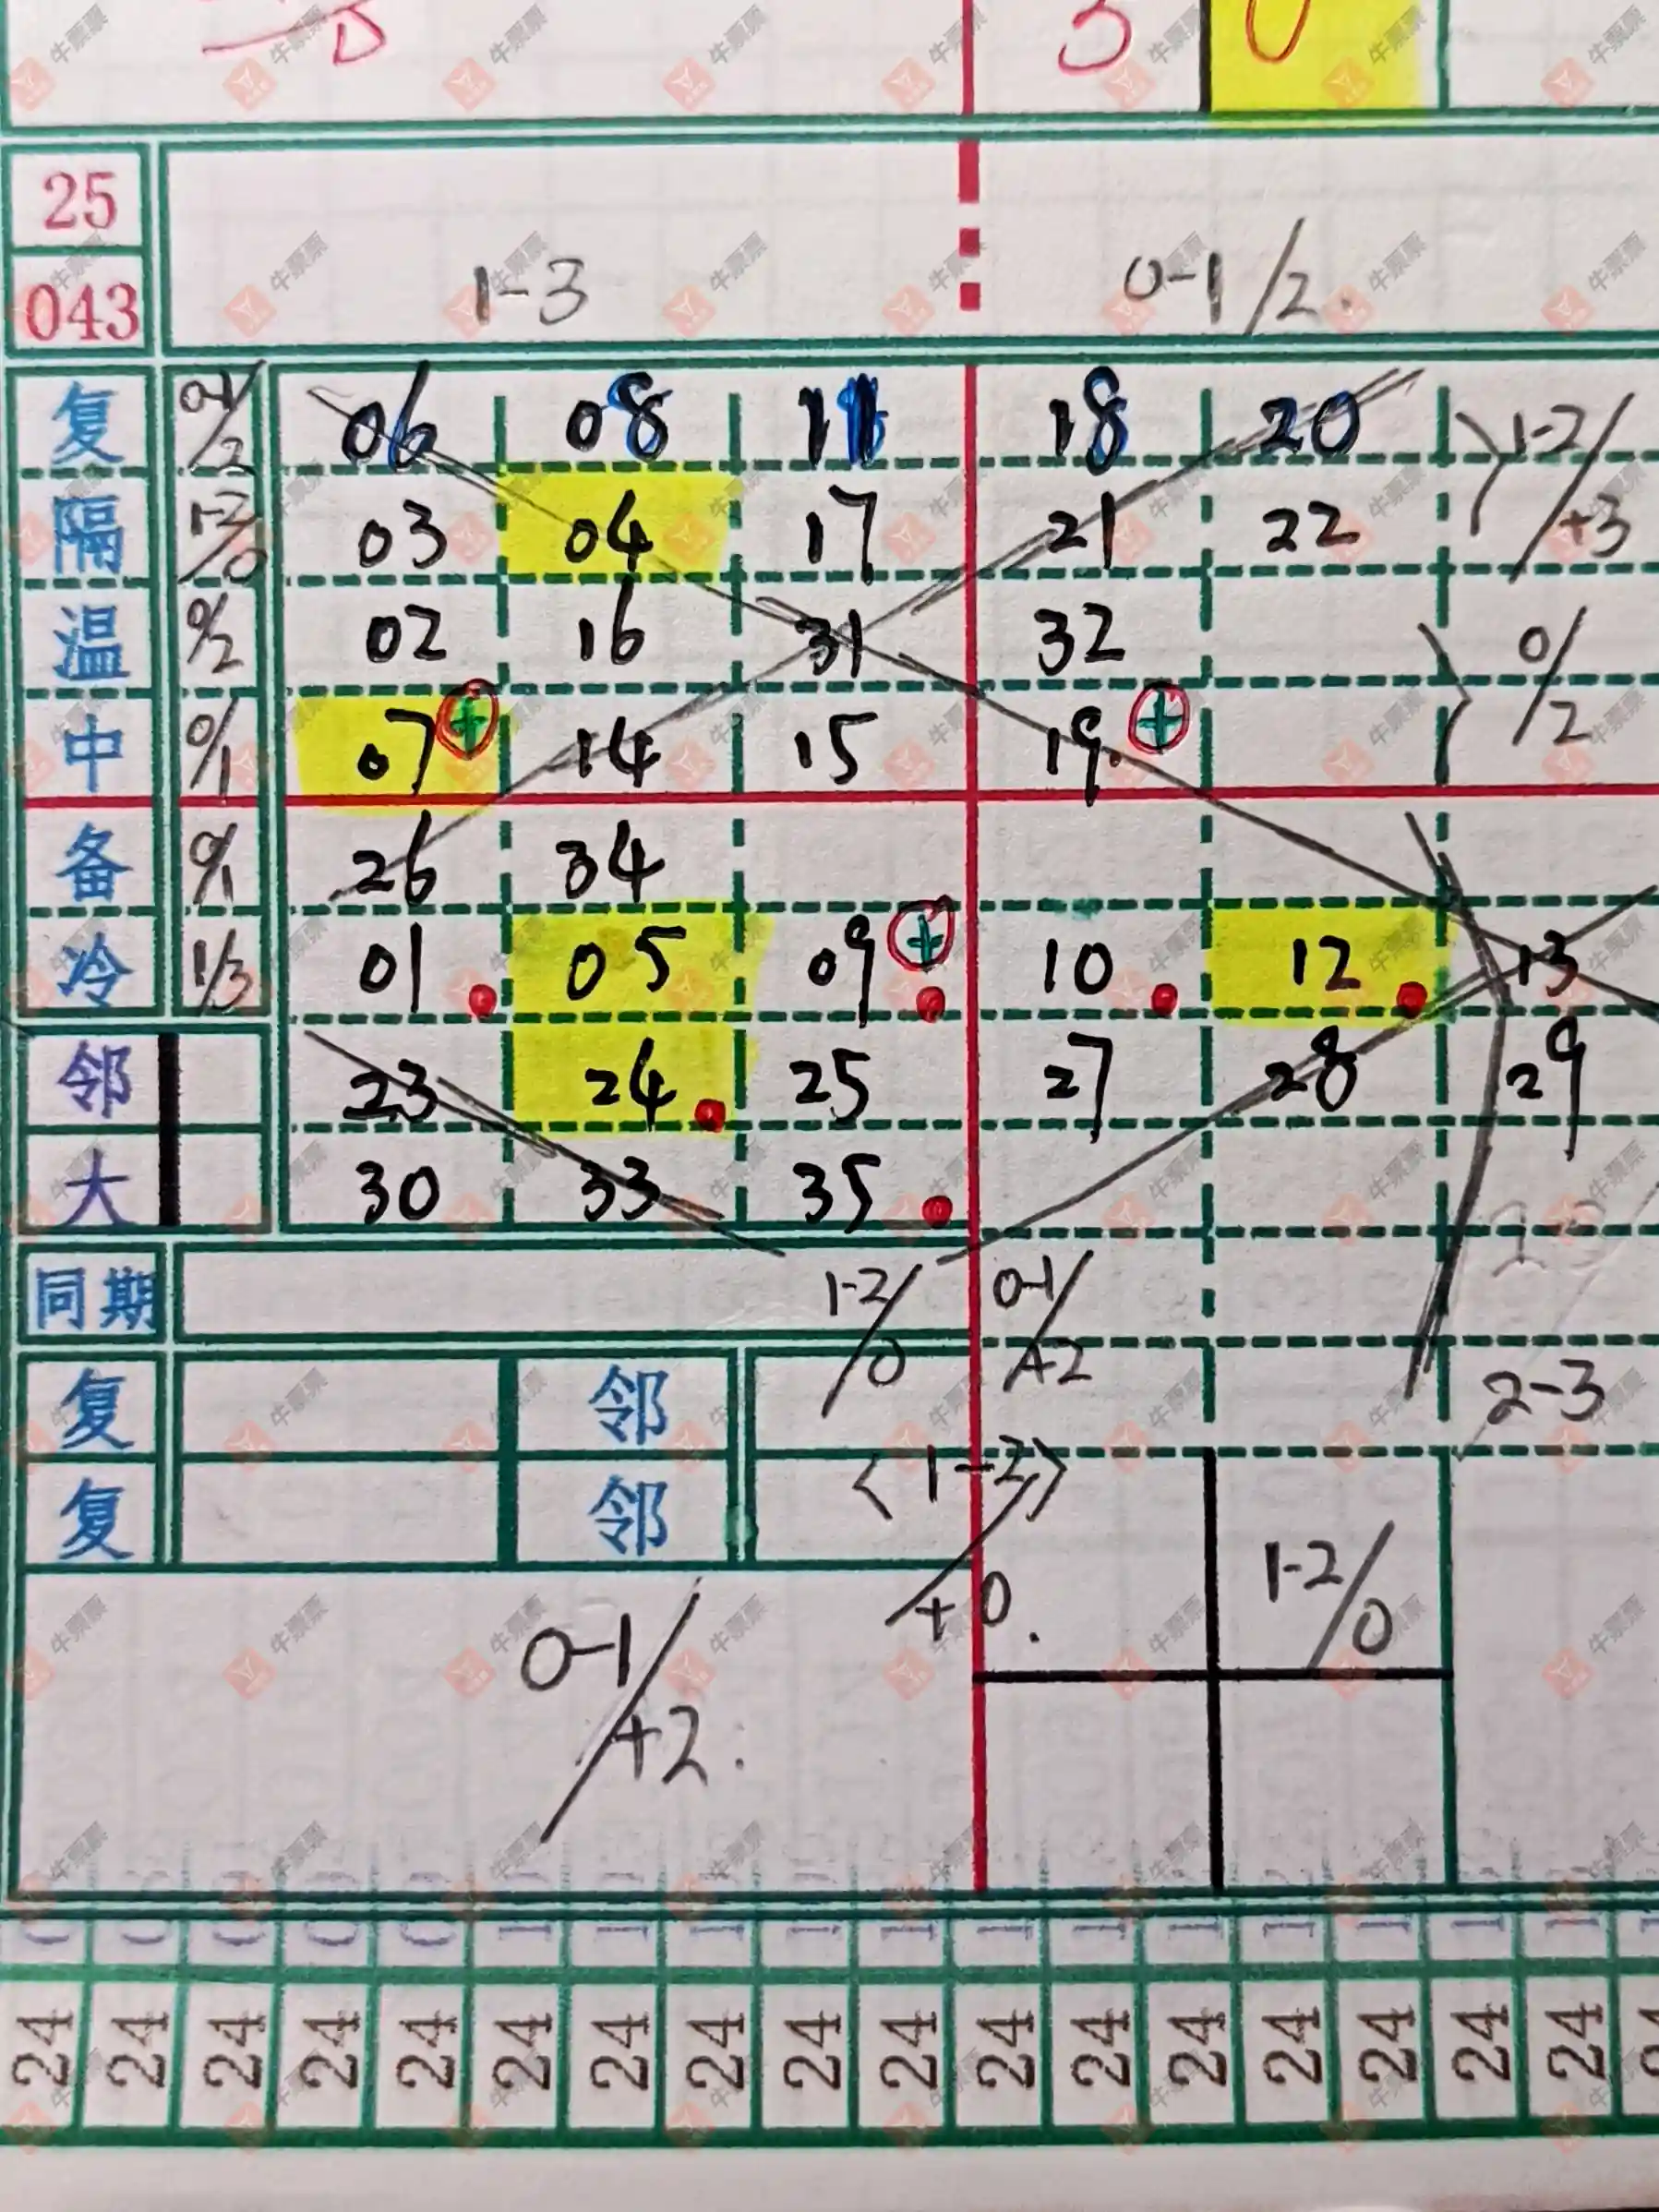 3
0
25
043
1-3
0-1/2.
复 0-1/2 06 08 11 18 20 1-2/+3
隔 03 04 17 21 22
温 0/2 02 16 31 32 0/2
中 0/1 07 + 14 15 19 +
备 0/1 26 34
冷 1/3 01 05 09 + 10 12 13
邻 23 24 25 27 28 29
大 30 33 35
同期 1-2/0 0-1/+2
复 邻 2-3
复 邻 <1-2>/+0.
1-2/0
0-1/+2.
24 24 24 24 24 24 24 24 24 24 24 24 24 24 24 24 24
牛票票